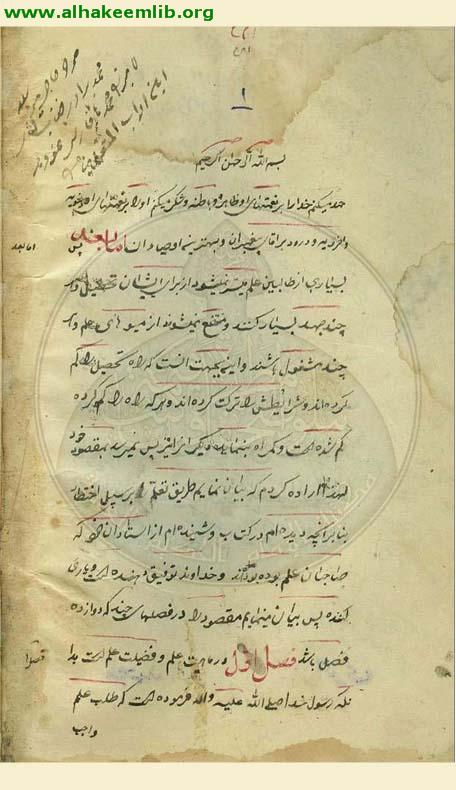 www.alhakeemlib.org
١
بسم الله الرحمن الرحیم
حمد میکنم خدا را بر نعمتهای او ظاهره و باطنه و شکر میکنم او را بر نعمتهای
و درود بر اقای پیغمبران و بهترین اوصیا و ان اما بعد پس
بسیاری از طالبین علم میسر نمیشود از برای ایشان تحصیل
چند جهد بسیار کنند و منتفع نمیشوند از میوه های علم و
چند مشغول باشند و این بجهت انست که راه تحصیل را کم
کرده اند و شرایطش را ترک کرده اند و هر که راه را کم کرده
کم شده است و کمراه بنماید دیکر انرا پس نمیرسد بمقصود خود
لهذا اراده کردم که بیان نمایم طریق تعلم بر سبیل اختصار
بنا بر انچه دیده ام در کتاب و شنیده ام از استادان خود که
صاحبان علم بوده اند و خداوند توفیق دهنده است و یاری
کننده پس بیان مینمایم مقصود را در فصلهای چند که دوازده
فصل باشد فصل اول در ماهیت علم و فضیلت علم است بدا
نکه رسول خدا صلی الله علیه و اله فرموده است که طلب علم
واجب
اما بعد